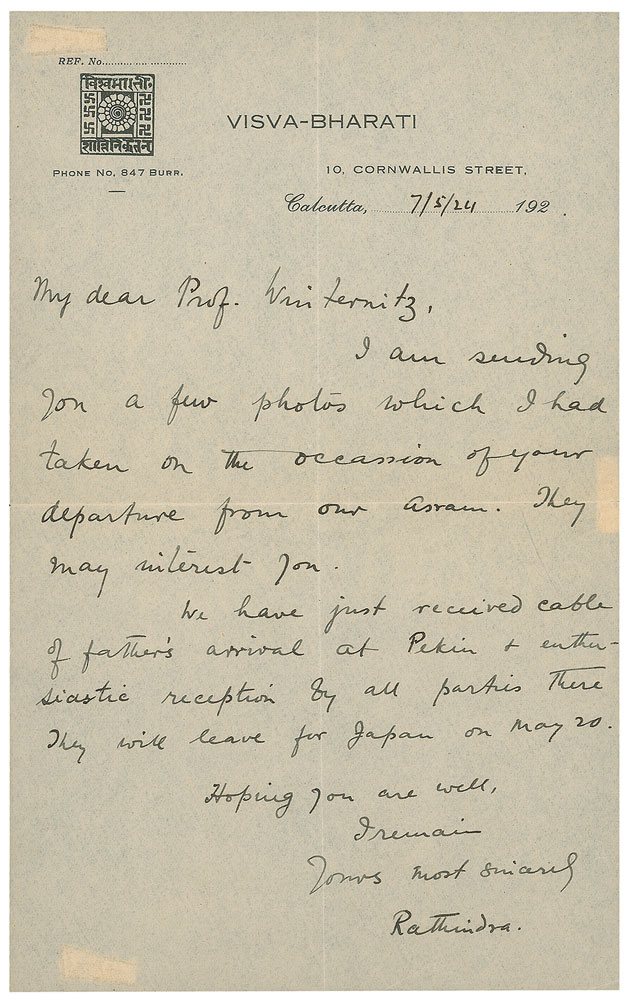 REF. No..............................
विश्वभारती
शान्तिनिकेतन
PHONE NO. 847 BURR.
VISVA-BHARATI
10, CORNWALLIS STREET,
Calcutta, 7/5/24 192 .
My dear Prof. Winternitz,
I am sending
you a few photos which I had
taken on the occassion of your
departure from our asram. They
may interest you.
We have just received cable
of father's arrival at Pekin + enthu-
siastic reception by all parties there
They will leave for Japan on May 20.
Hoping you are well,
I remain
Yours most sincerely
Rathindra.